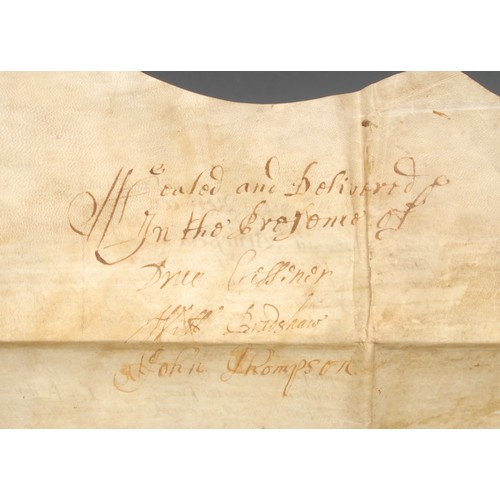 Sealed and Delivered
In the Presence of
Drue Cressener
Will Bradshaw
John Thompson